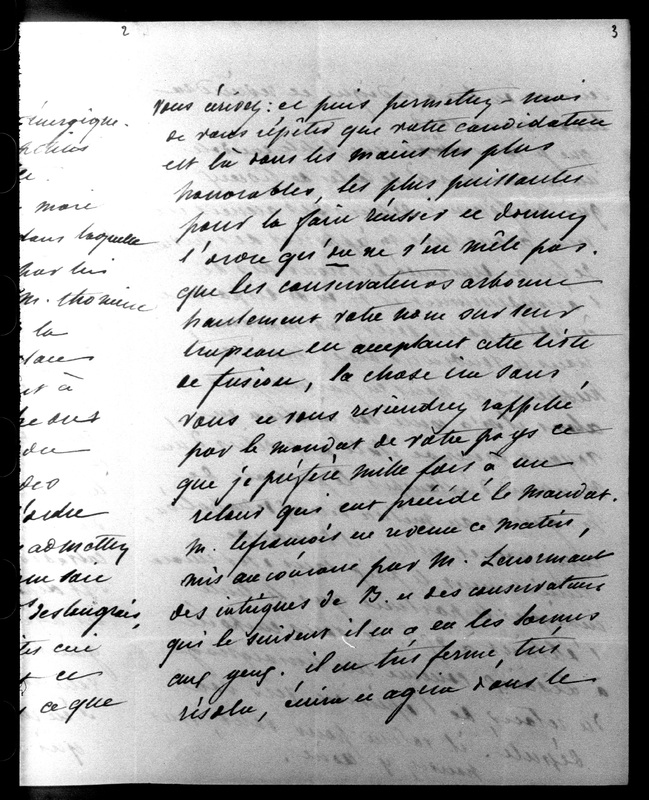 2
3
énergique.
mare
dans laquelle
par les
M. thomine
la
à
du
des
l'ordre
admettez
Deslongrais,
ce
ce que
vous : et puis permettez moi
de vous répéter que votre candidature
est là dans les mains les plus
honorables, les plus puissantes
pour la faire réussir et donnez
l'ordre qu'on ne s'en mêle pas.
que les conservateurs arborent
hautement votre nom sur leur
drapeau en acceptant cette liste
de fusion, la chose ira sans
vous et vous reviendrez rappelé
par le mandat de votre pays ce
que je préfère mille fois à un
retour qui eut précédé le mandat.
M. lefrançois est revenu ce matin,
mis au courant par M. Lenormant
des intrigues de B et des conservateurs
qui le suivent il en a eu les larmes
aux yeux. il est très ferme, très
résolu, écrira et agira dans le